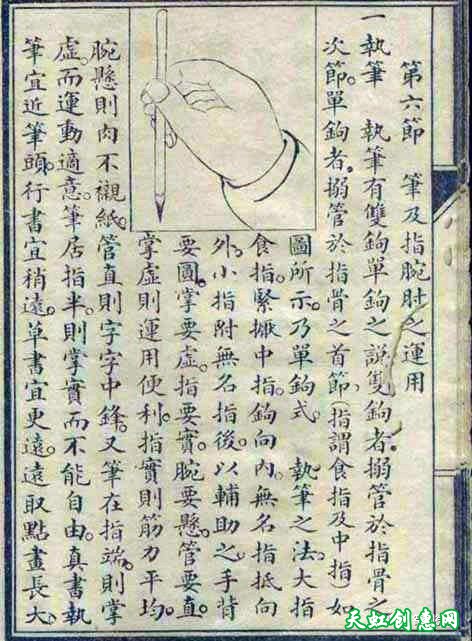 第六節　筆及指腕肘之運用
一　執筆　執筆有雙鉤單鉤之説雙鉤者。搦管於指骨之
次節單鉤者。搦管於指骨之首節、(指謂食指及中指如
圖所示。乃單鉤式。　執筆之法。大指
食指。緊擫中指。鉤向內。無名指抵向
外。小指附無名指後。以輔助之。手背
要圓。掌要虛。指要實。腕要懸。管要直。
掌虛則運用便利。指實則筋力平均。
腕懸則肉不襯紙。管直則字字中鋒。又筆在指端。則掌
虛。而運動適意。筆居指半。則掌實而不能自由。真書執
筆宜近筆頭。行書宜稍遠。草書宜更遠。遠取點畫長大。
天虹创意网